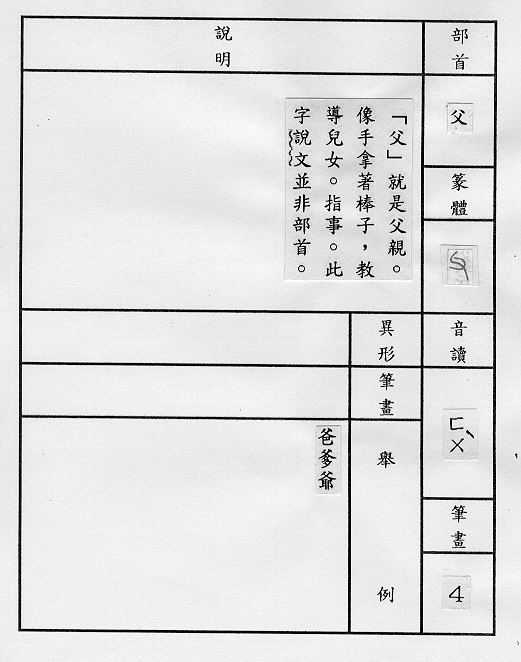 部首
父
篆體
音讀
ㄈㄨˋ
筆畫
4
說明
「父」就是父親。
像手拿著棒子，教
導兒女。指事。此
字說文並非部首。
異形
筆畫
舉例
爸爹爺